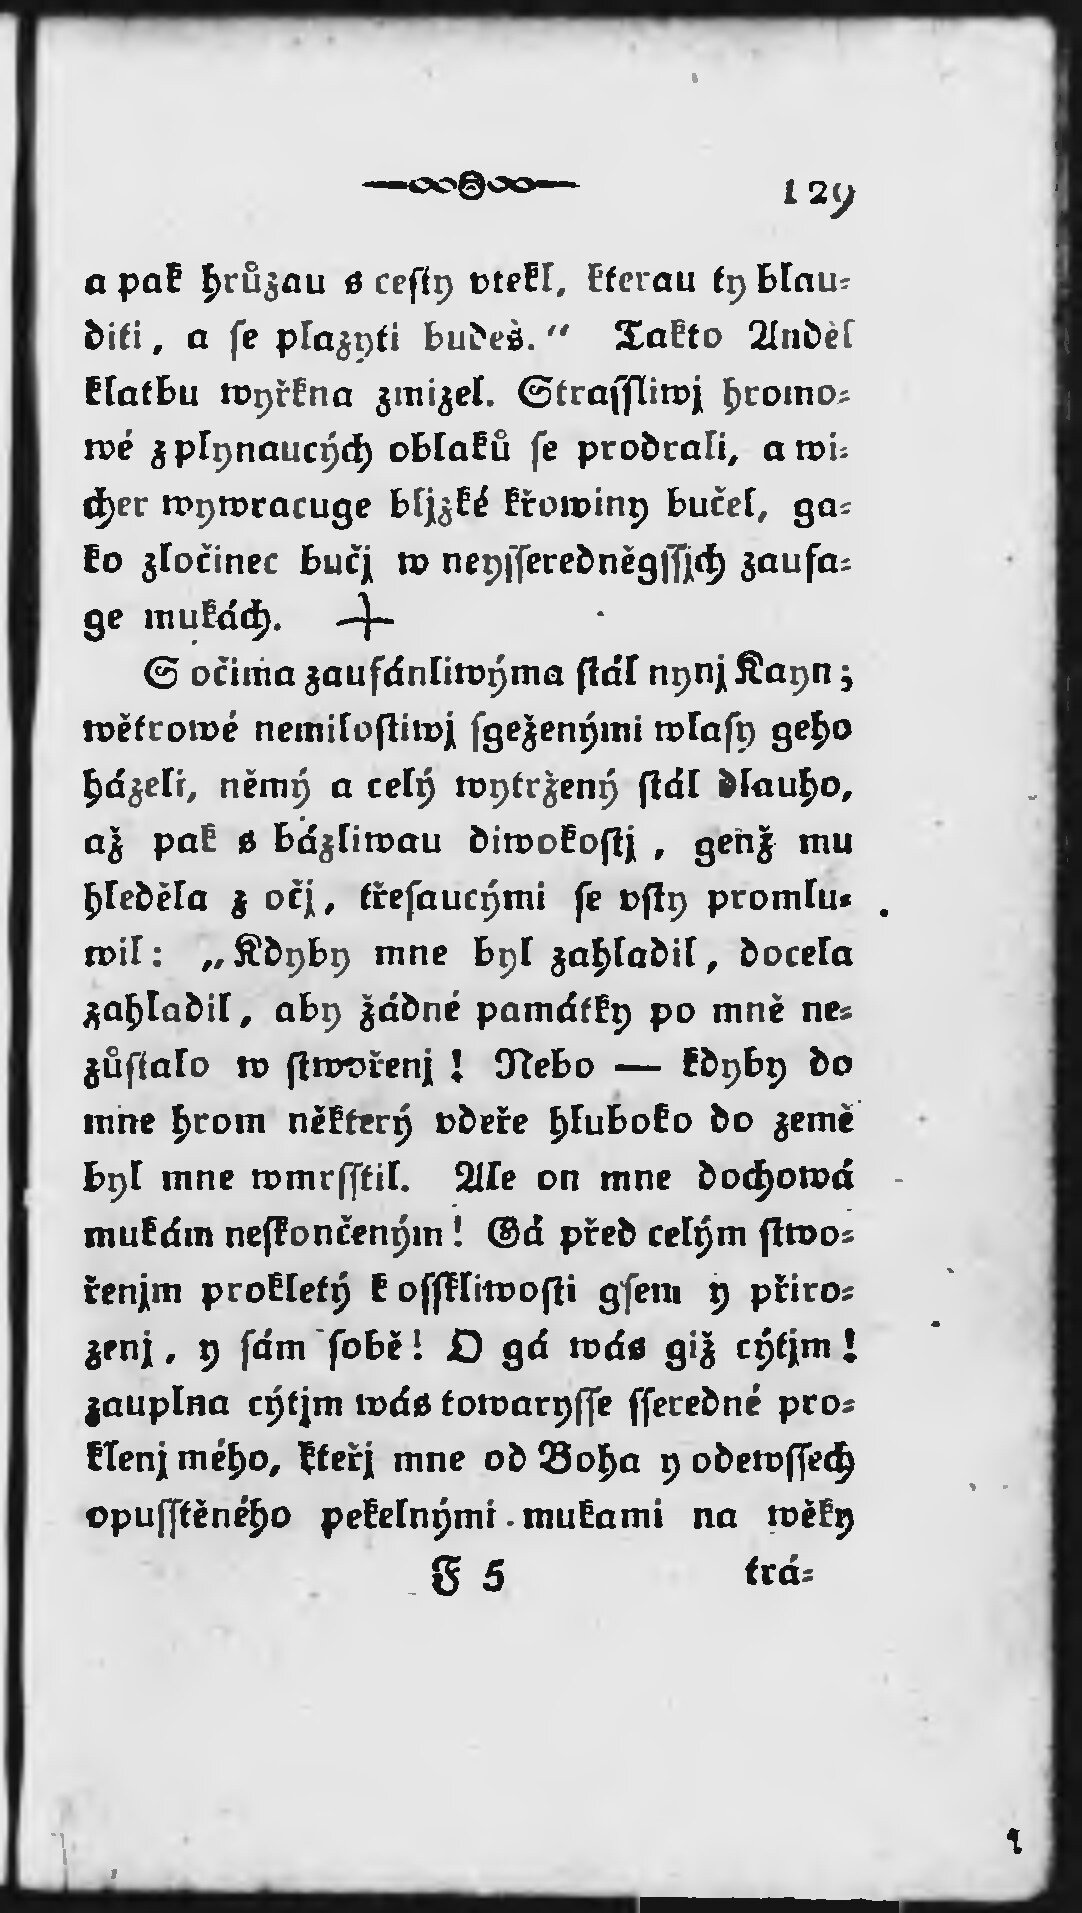 129
a pak hrůzau s ceſty vtekl, kterau ty blau⸗
diti, a ſe plazyti budeš.“ Takto Anděl
klatbu wyřkna zmizel. Straſſliwj hromo⸗
wé z plynaucých oblaků ſe prodrali, a wi⸗
cher wywracuge bljzké křowiny bučel, ga⸗
ko zločinec bučj w neyſſerednĕgſſjch zaufa⸗
ge mukách.
S očima zaufánliwýma ſtál nynj Kayn;
wětrowé nemiloſtiwj ſgeženými wlaſy geho
házeli, němý a celý wytržený ſtál dlauho,
až pak s bázliwau diwokoſtj, genž mu
hleděla z očj, třeſaucými ſe vſty promlu⸗
wil: „Kdyby mne byl zahladil, docela
zahladil, aby žádné památky po mně ne⸗
zůſtalo w ſtwořenj! Nebo — kdyby do
mne hrom některý vdeře hluboko do země
byl mne wmrſſtil. Ale on mne dochowá
mukám neſkončeným! Gá před celým ſtwo⸗
řenjm prokletý k oſſkliwoſti gſem y přiro⸗
zenj, y ſám ſobě! O gá wás giž cýtjm!
zauplna cýtjm wás towaryſſe ſſeredné pro⸗
klenj mého, kteřj mne od Boha y odewſſech
opuſſtěného pekelnými mukami na wěky
F 5 trá⸗